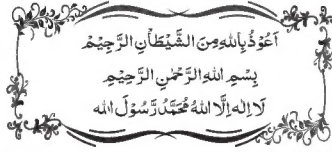 اَعُوْذُ بِاللّٰهِ مِنَ الشَّيْطَانِ الرَّجِيْمِ
بِسْمِ اللهِ الرَّحْمٰنِ الرَّحِيْمِ
لَا اِلٰهَ اِلَّا اللهُ مُحَمَّدٌ رَّسُوْلُ الله